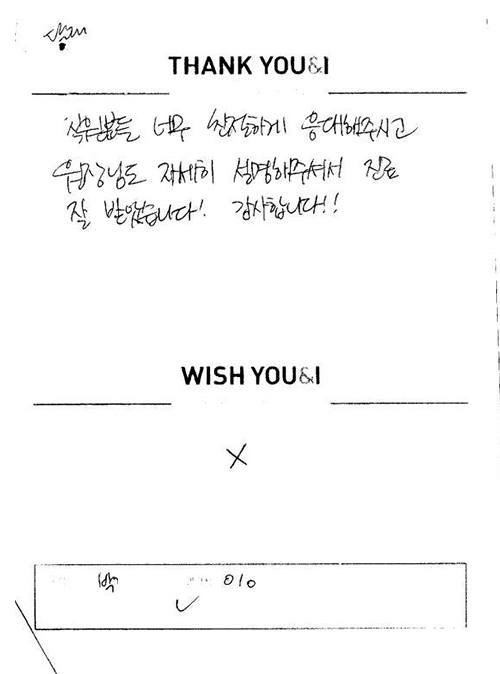 THANK YOU&I
직원분들 너무 친절하게 응대해주시고
원장님도 자세히 설명해주셔서 진료
잘 받았습니다! 감사합니다!!
WISH YOU&I
X
박 010
✓